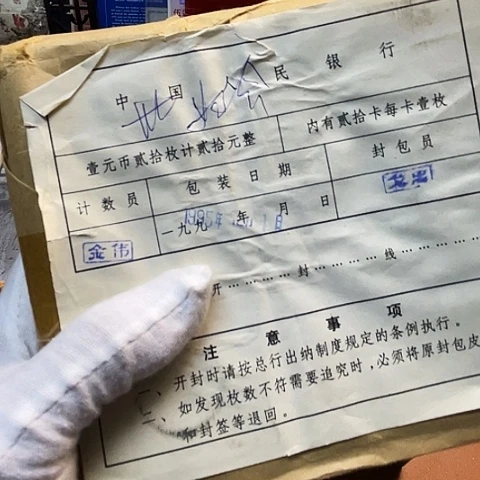 中国 民银行
壹元币贰拾枚计贰拾元整
内有贰拾卡每卡壹枚
计数员
包装日期
封包员
一九九 年 月 日
1995年 1日
开……………封……………线……………
注意事项
一、开封时请按总行出纳制度规定的条例执行。
二、如发现枚数不符需要追究时，必须将原封包皮
和封签等退回。